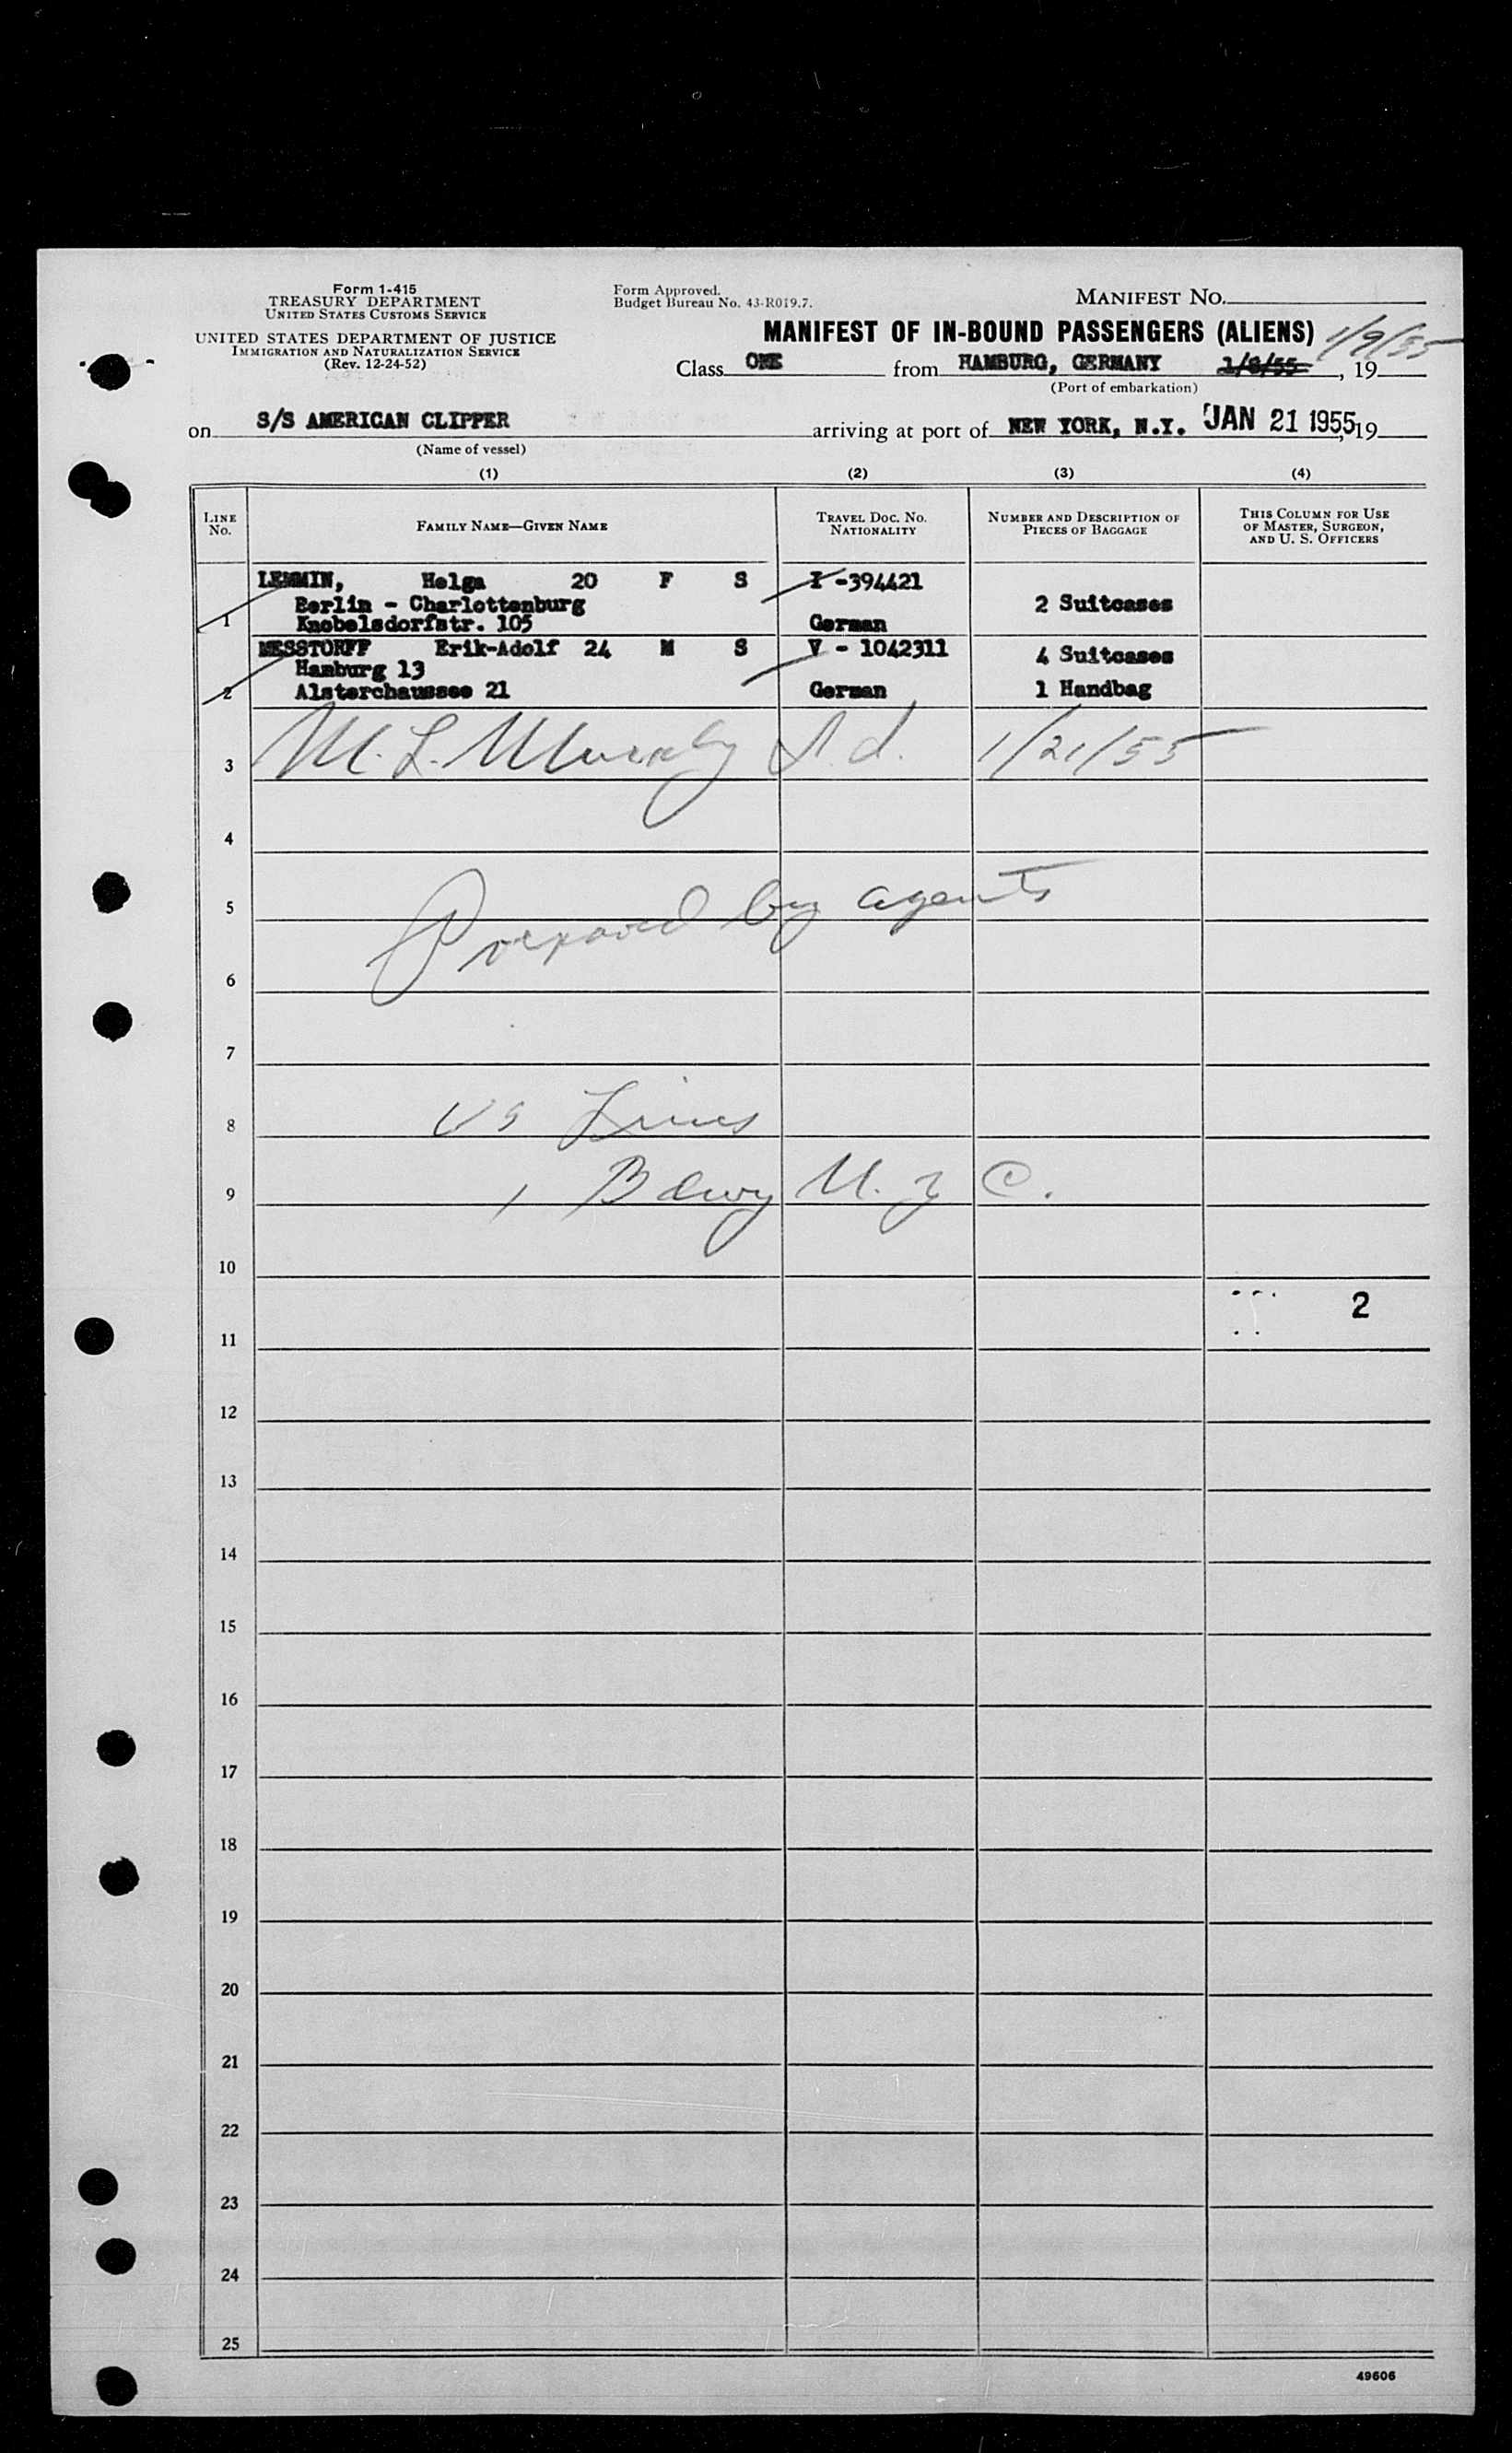 Form 1-415
TREASURY DEPARTMENT
UNITED STATES CUSTOMS SERVICE
UNITED STATES DEPARTMENT OF JUSTICE
IMMIGRATION AND NATURALIZATION SERVICE
(Rev. 12-24-52)
Form Approved.
Budget Bureau No. 43-R019.7.
MANIFEST NO.
MANIFEST OF IN-BOUND PASSENGERS (ALIENS)
1/9/55
Class ONE from HAMBURG, GERMANY 1/8/55, 19
(Port of embarkation)
on S/S AMERICAN CLIPPER arriving at port of NEW YORK, N.Y. JAN 21 1955, 19
(Name of vessel)
(1) (2) (3) (4)
LINE NO.
FAMILY NAME—GIVEN NAME
TRAVEL DOC. NO.
NATIONALITY
NUMBER AND DESCRIPTION OF
PIECES OF BAGGAGE
THIS COLUMN FOR USE
OF MASTER, SURGEON,
AND U. S. OFFICERS
LEMMIN, Helga 20 F S I -394421
Berlin - Charlottenburg 2 Suitcases
1 Knobelsdorfstr. 105 German
MESSTORFF Erik-Adolf 24 M S V - 1042311
Hamburg 13 4 Suitcases
2 Alsterchaussee 21 German 1 Handbag
3 M. L. Murphy 1/21/55
4
5 Prepared by agents
6
7
8 US Lines
9 1 Bdwy N. Y C.
10
2
11
12
13
14
15
16
17
18
19
20
21
22
23
24
25
49606